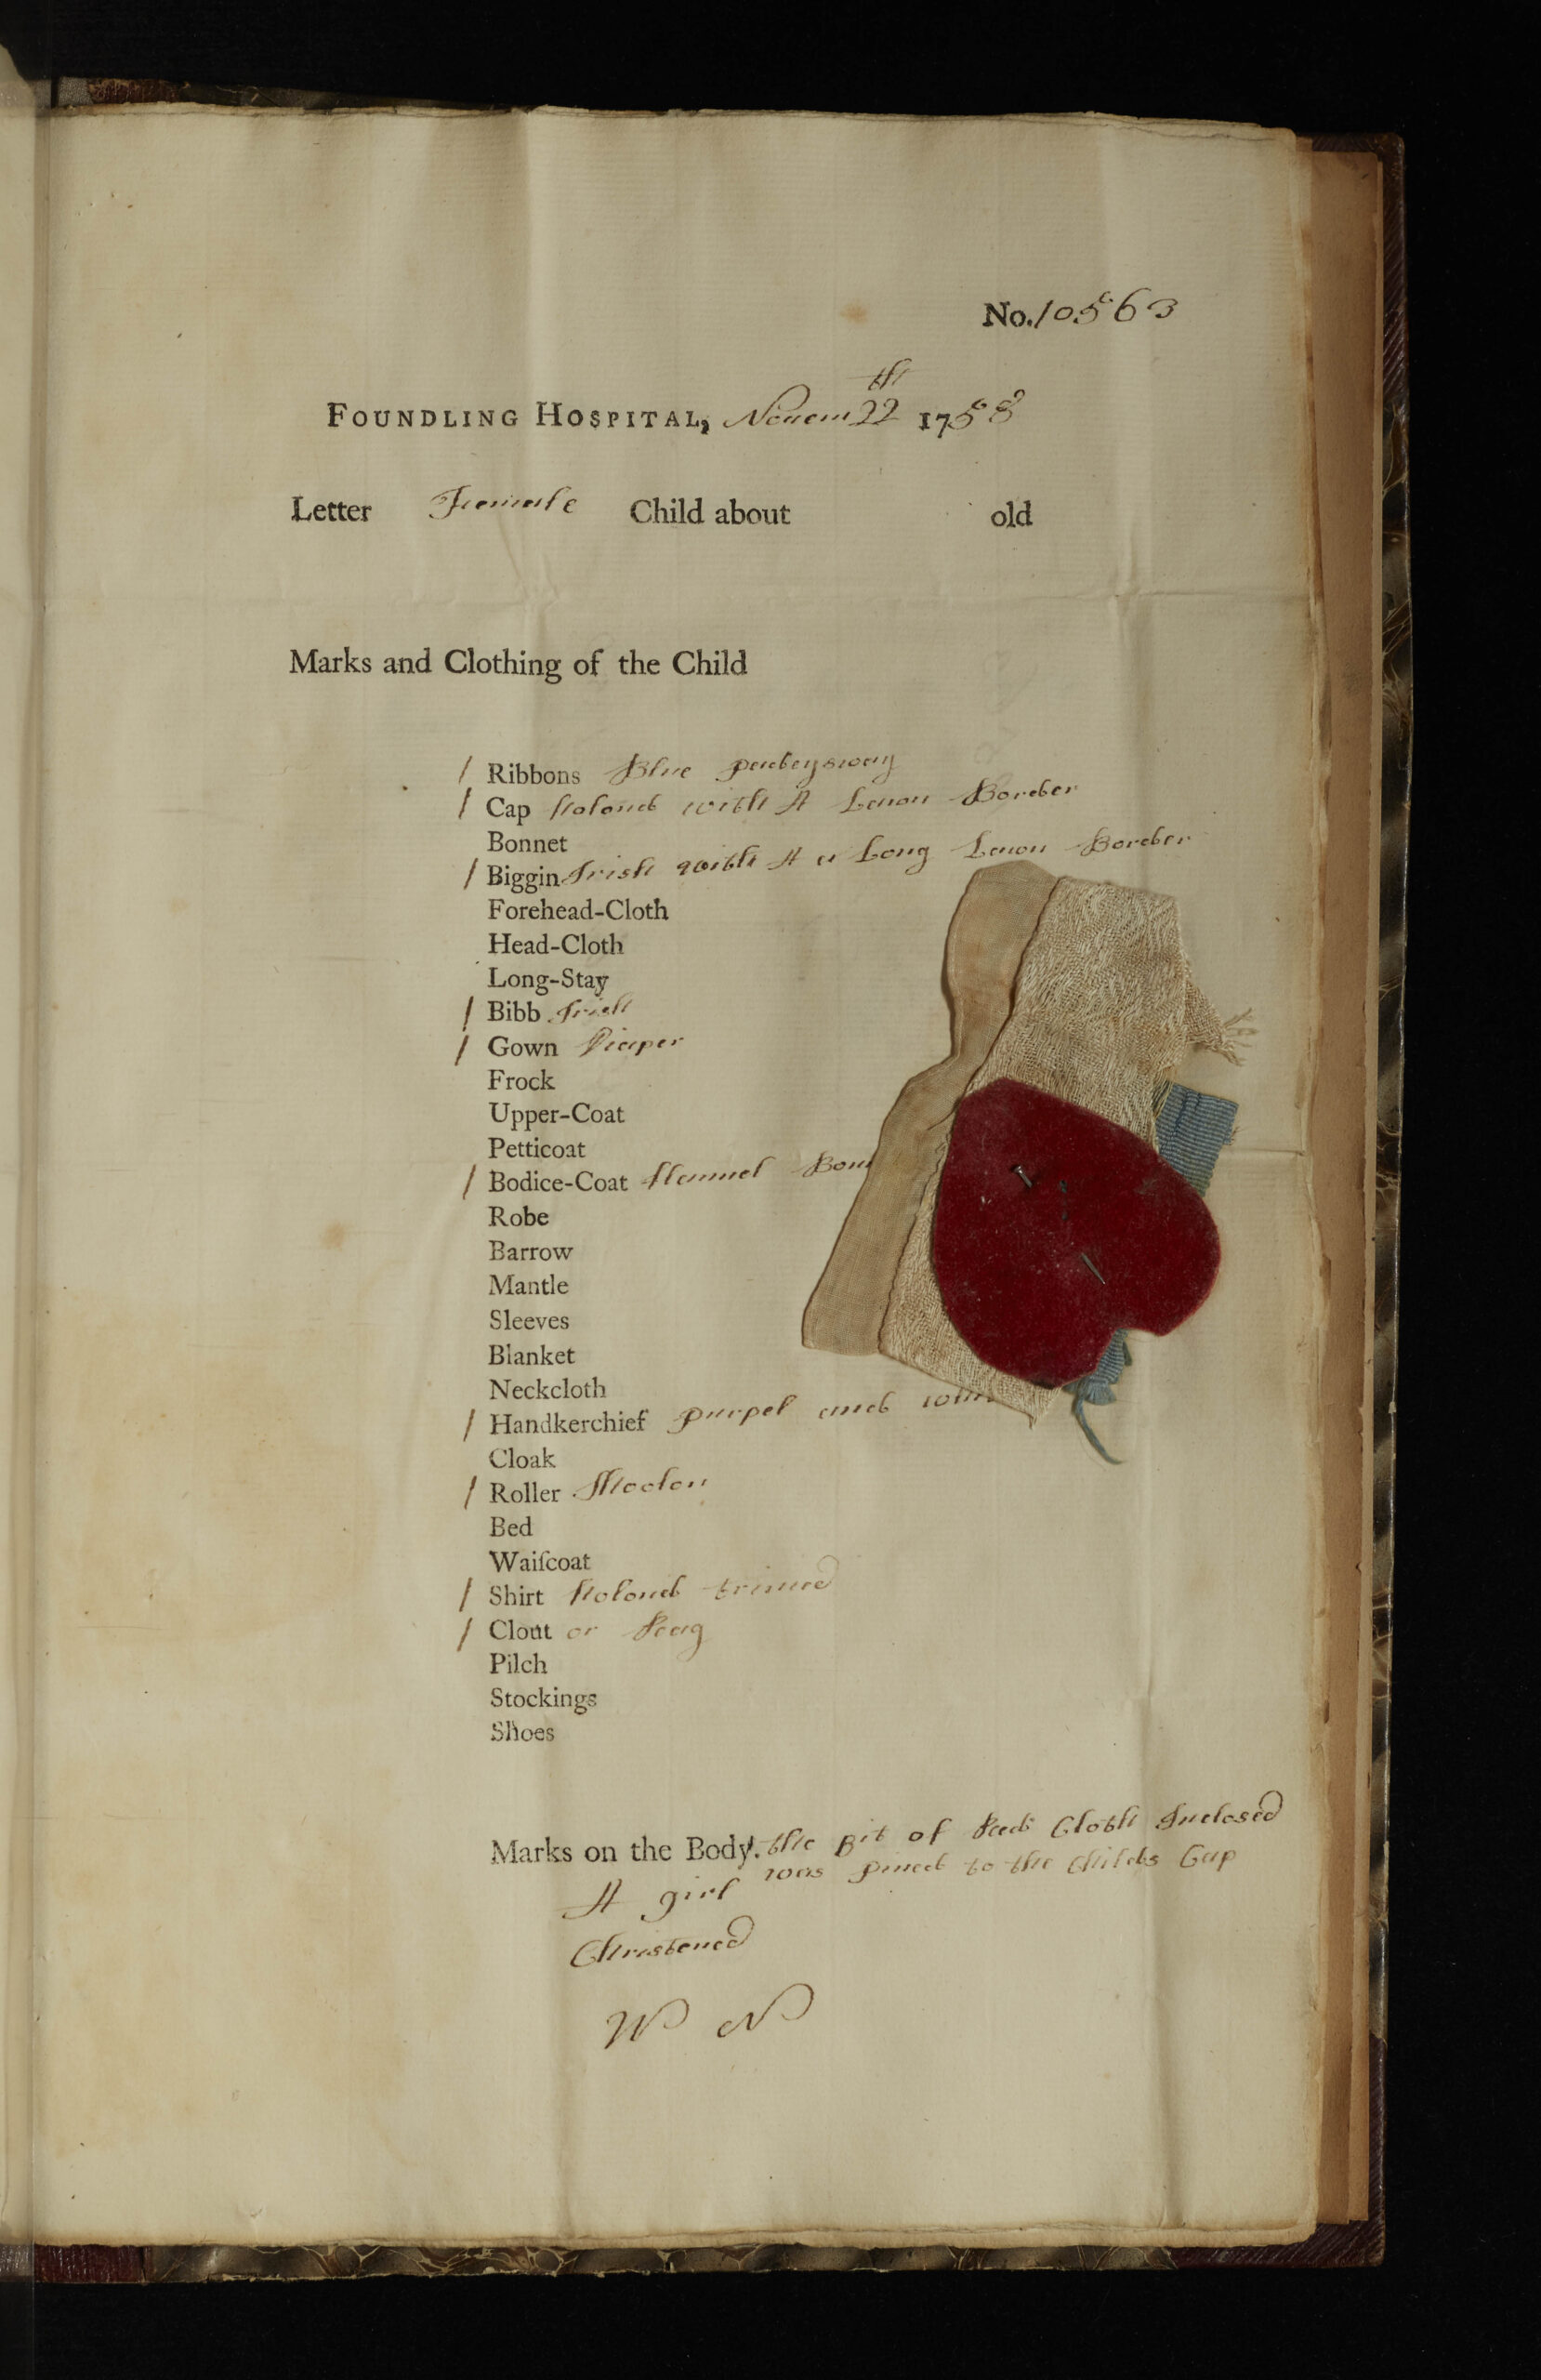 No. 10563
th
FOUNDLING HOSPITAL, Novem 22 1758
Letter Female Child about old
Marks and Clothing of the Child
/ Ribbons Blue
/ Cap Holond with A Lawn Border
Bonnet
/ Biggin Irish with A a Long Lawn Border
Forehead-Cloth
Head-Cloth
Long-Stay
/ Bibb Irish
/ Gown Diaper
Frock
Upper-Coat
Petticoat
/ Bodice-Coat flannel
Robe
Barrow
Mantle
Sleeves
Blanket
Neckcloth
/ Handkerchief purpel and
Cloak
/ Roller
Bed
Waiſcoat
/ Shirt Holond trimed
/ Clout or Rag
Pilch
Stockings
Shoes
Marks on the Body. the Bit of Red Cloth Inclosed
was pined to the Childs Cap
A girl
Christened
W N